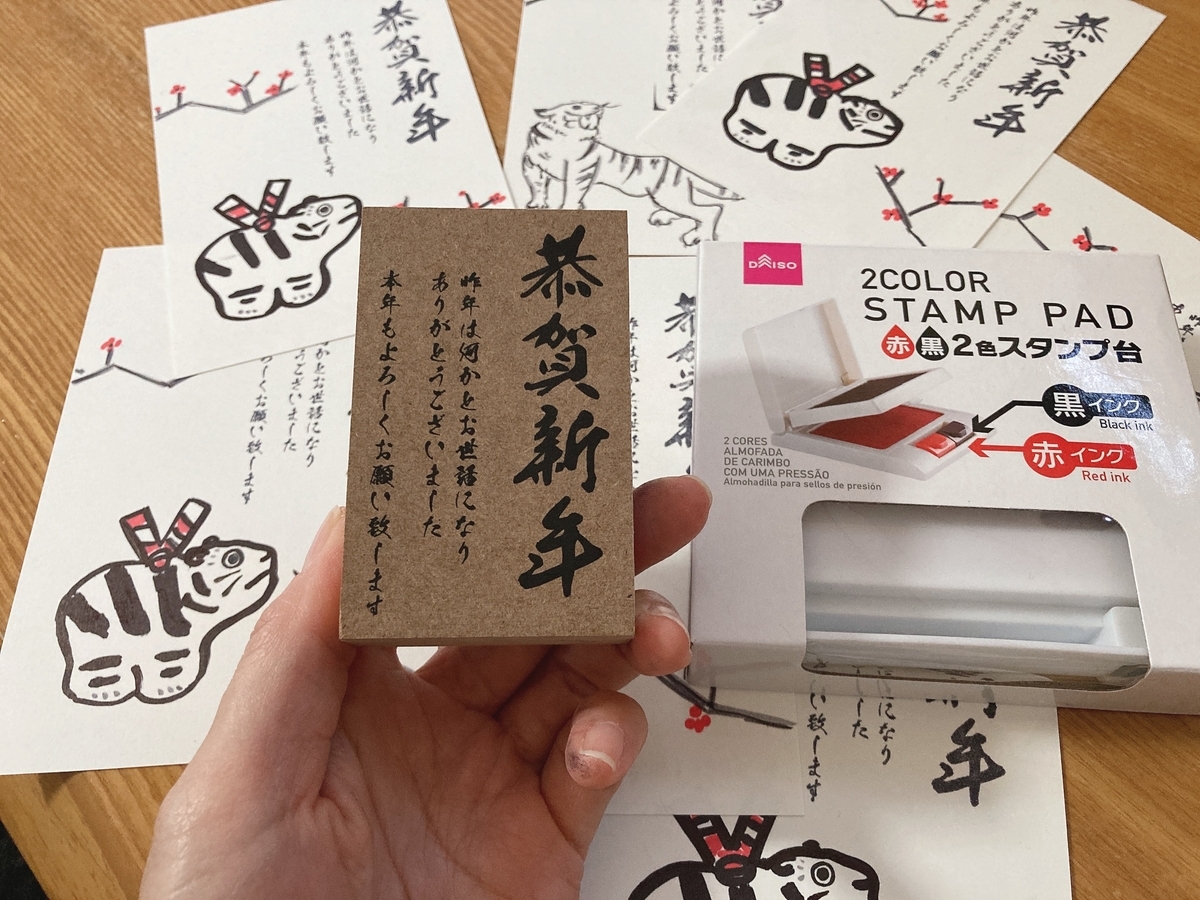 恭賀新年
昨年は何かとお世話になり
ありがとうございました
本年もよろしくお願い致します
恭賀新年
恭賀新年
昨年は何かとお世話になり
ありがとうございました
本年もよろしくお願い致します
DAISO
2COLOR
STAMP PAD
赤黒2色スタンプ台
黒インク
Black ink
赤インク
Red ink
2 CORES
ALMOFADA
DE CARIMBO
COM UMA PRESSÃO
Almohadilla para sellos de presión
かとお世話になり
うございました
らしくお願い致します
になり
した
い致します
年